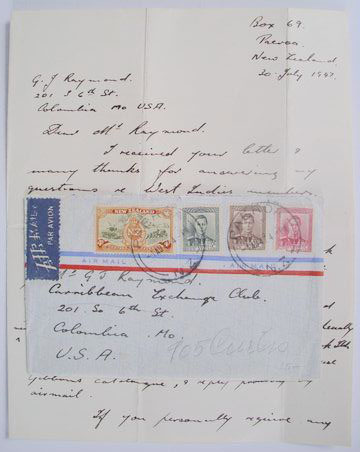 Box 69.
Paeroa
New Zealand.
20 July 1947.
G. J Raymond.
201 S 6th St.
Columbia Mo USA.
Dear Mr Raymond.
I received your letter &
many thanks for answering my
questions re West Indies members.
AIR MAIL
PAR AVION
NEW ZEALAND
AIR MAIL
AIR MAIL
Mr G J Raymond
Carribbean Exchange Club.
201. So 6th St.
Columbia. Mo.
U.S.A.
Gibbons catalogue, & reply
airmail.
If you personally require any